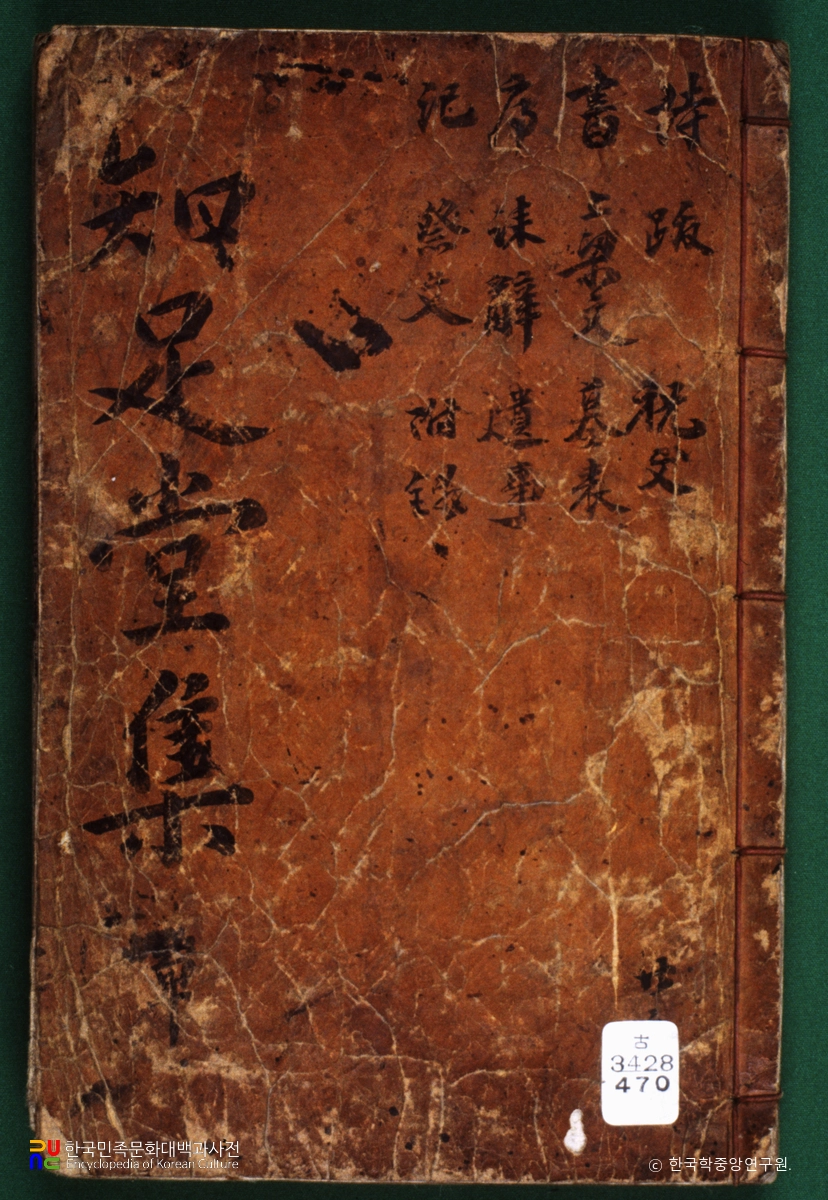 詩 跋 祝文
書 上梁文 墓表
序 誄辭 遺事
記 祭文 附錄
知足堂集 單
古
3428
470
한국민족문화대백과사전
Encyclopedia of Korean Culture
© 한국학중앙연구원.